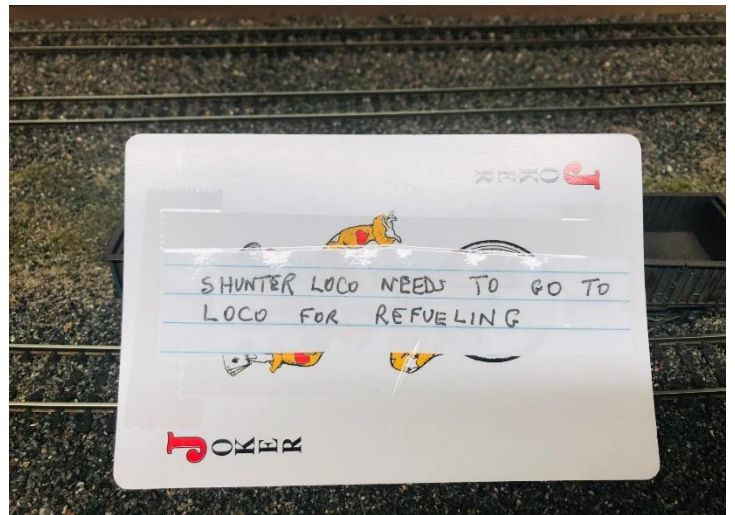 JOKER
SHUNTER LOCO NEEDS TO GO TO
LOCO FOR REFUELING
JOKER